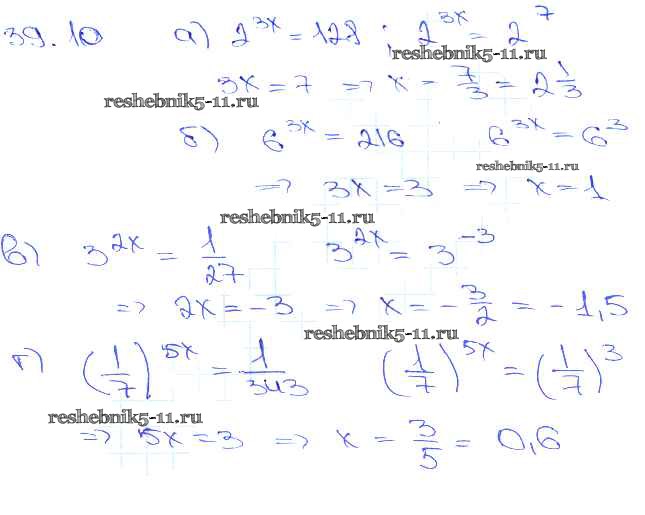 39.10 а) 2^{3x} = 128 ; 2^{3x} = 2^7
reshebnik5-11.ru
3x = 7 => x = 7/3 = 2 1/3
reshebnik5-11.ru
б) 6^{3x} = 216 6^{3x} = 6^3
reshebnik5-11.ru
=> 3x = 3 => x = 1
reshebnik5-11.ru
в) 3^{2x} = 1/27 3^{2x} = 3^{-3}
=> 2x = -3 => x = -3/2 = -1,5
reshebnik5-11.ru
г) (1/7)^{5x} = 1/343 (1/7)^{5x} = (1/7)^3
reshebnik5-11.ru
=> 5x = 3 => x = 3/5 = 0,6